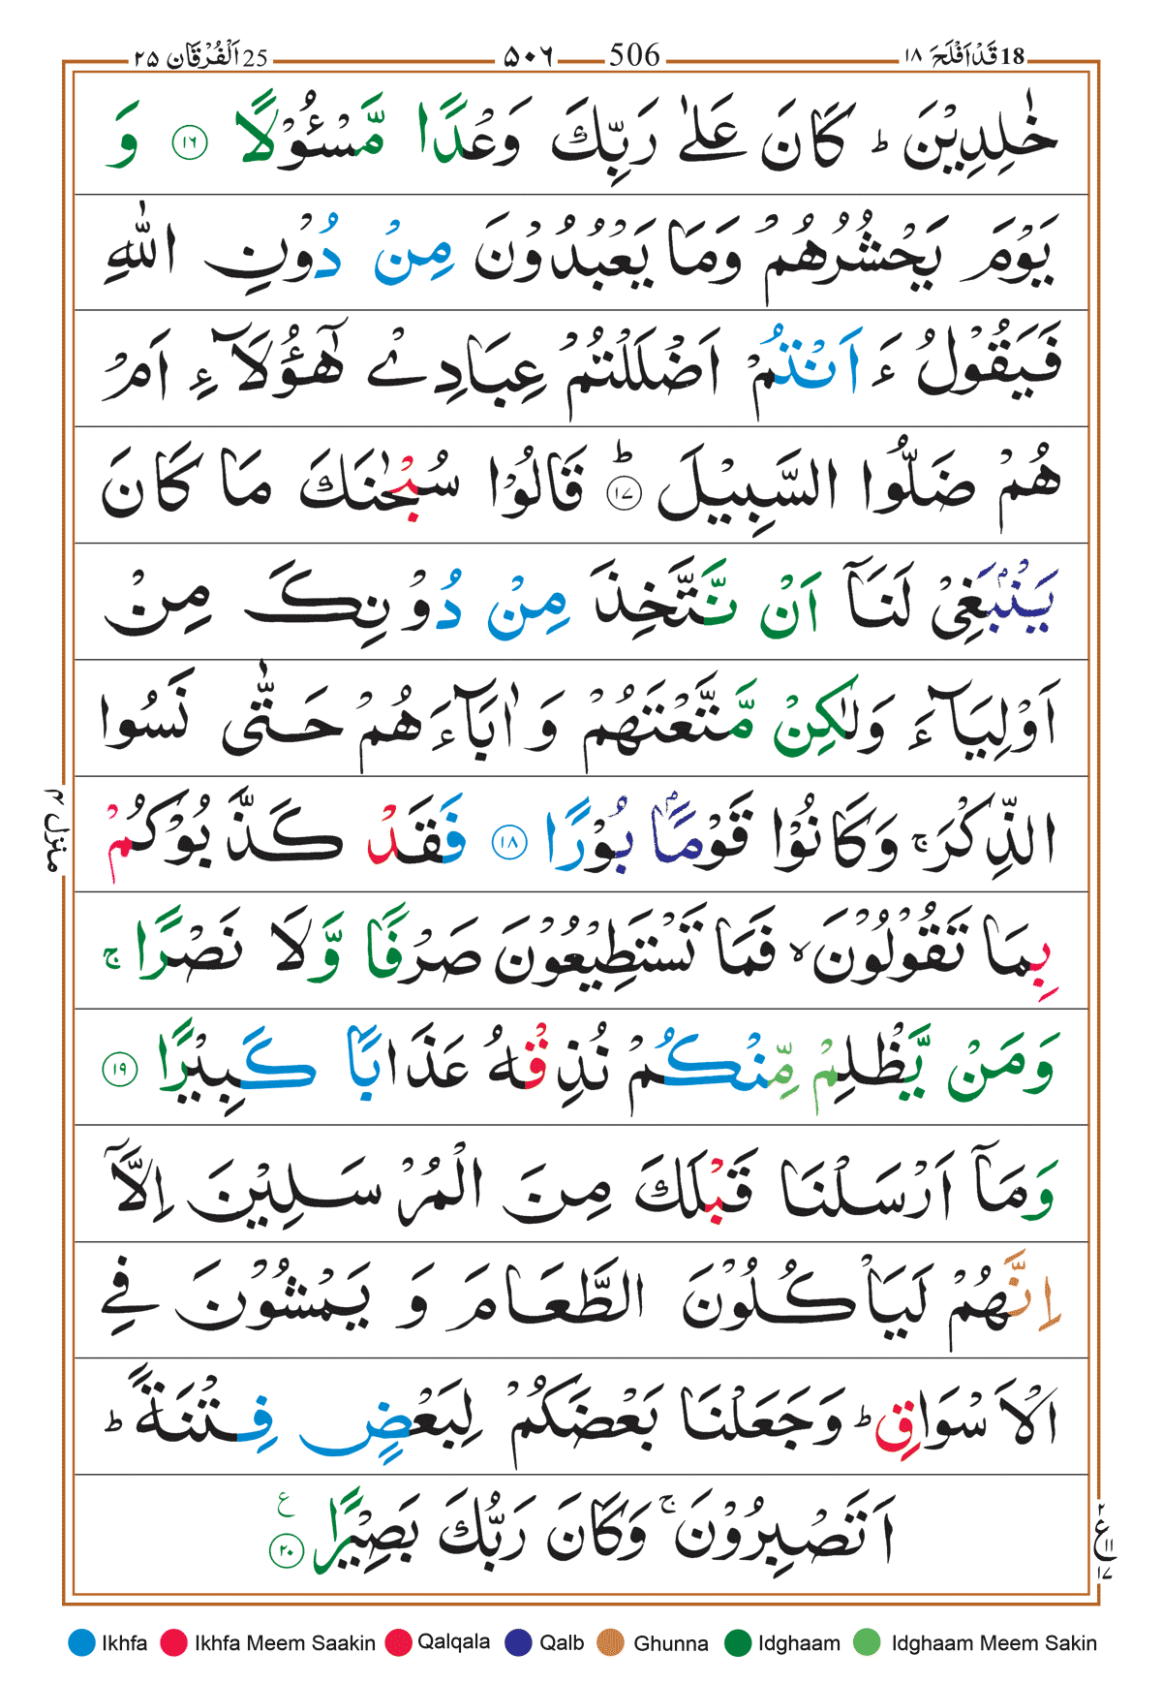 18 قَدْ اَفْلَحَ ١٨
506 ۵۰۶
25 اَلْفُرْقَان ٢۵
خٰلِدِيْنَ ؕ كَانَ عَلٰى رَبِّكَ وَعْدًا مَّسْـُٔوْلًا ١٦ وَ
يَوْمَ يَحْشُرُهُمْ وَمَا يَعْبُدُوْنَ مِنْ دُوْنِ اللّٰهِ
فَيَقُوْلُ ءَ اَنْتُمْ اَضْلَلْتُمْ عِبَادِيْ هٰٓؤُلَآءِ اَمْ
هُمْ ضَلُّوا السَّبِيْلَ ؕ ١٧ قَالُوْا سُبْحٰنَكَ مَا كَانَ
يَنْۢبَغِيْ لَنَاۤ اَنْ نَّتَّخِذَ مِنْ دُوْنِكَ مِنْ
اَوْلِيَآءَ وَلٰكِنْ مَّتَّعْتَهُمْ وَ اٰبَآءَهُمْ حَتّٰى نَسُوا
الذِّكْرَ ۚ وَكَانُوْا قَوْمًۢا بُوْرًا ١٨ فَقَدْ كَذَّبُوْكُمْ
بِمَا تَقُوْلُوْنَ ۙ فَمَا تَسْتَطِيْعُوْنَ صَرْفًا وَّلَا نَصْرًا ۚ
وَمَنْ يَّظْلِمْ مِّنْكُمْ نُذِقْهُ عَذَابًا كَبِيْرًا ١٩
وَمَاۤ اَرْسَلْنَا قَبْلَكَ مِنَ الْمُرْسَلِيْنَ اِلَّاۤ
اِنَّهُمْ لَيَاْكُلُوْنَ الطَّعَامَ وَ يَمْشُوْنَ فِي
الْاَسْوَاقِ ؕ وَجَعَلْنَا بَعْضَكُمْ لِبَعْضٍ فِتْنَةً ؕ
اَتَصْبِرُوْنَ ۚ وَكَانَ رَبُّكَ بَصِيْرًا ٢٠ ع
منزل ۴
٢ ع ١١ ١٧
Ikhfa Ikhfa Meem Saakin Qalqala Qalb Ghunna Idghaam Idghaam Meem Sakin